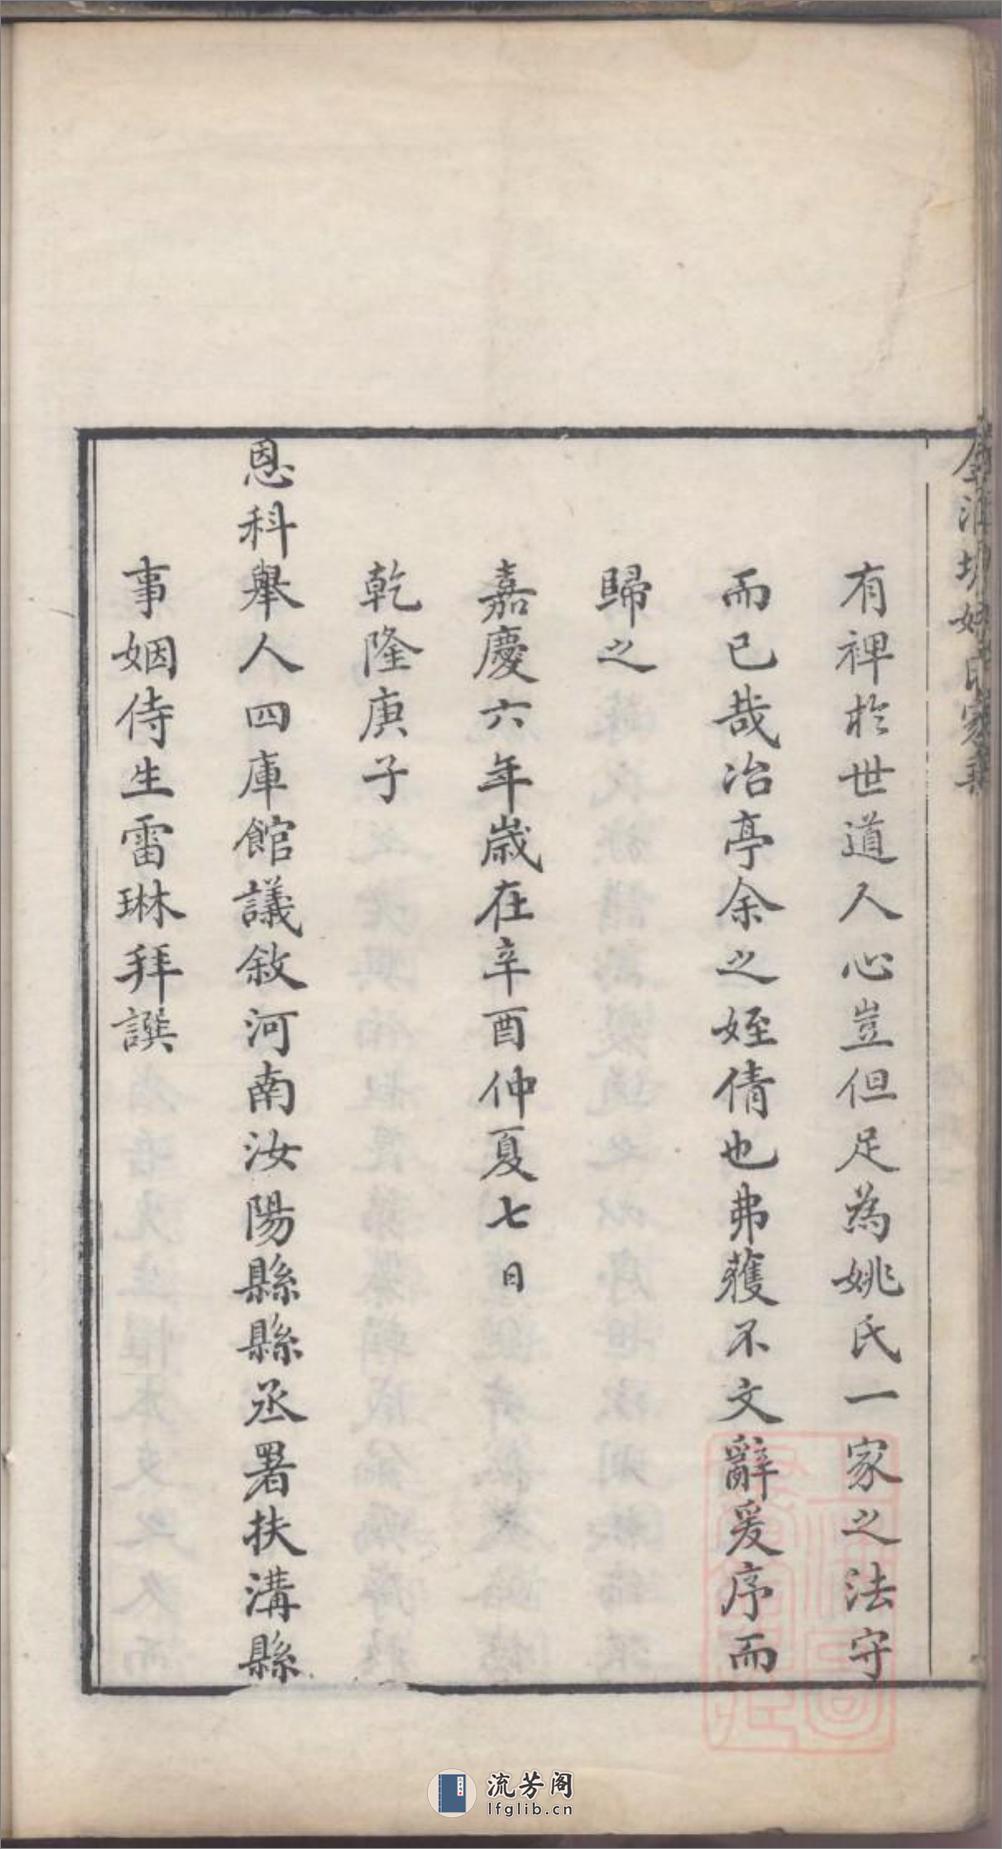 有裨於世道人心豈但足為姚氏一家之法守
而已哉冶亭余之姪倩也弗獲不文辭爰序而
歸之
嘉慶六年歲在辛酉仲夏七日
乾隆庚子
恩科舉人四庫館議敘河南汝陽縣縣丞署扶溝縣
事姻侍生雷琳拜譔
姚氏家乘
流芳阁
lfglib.cn